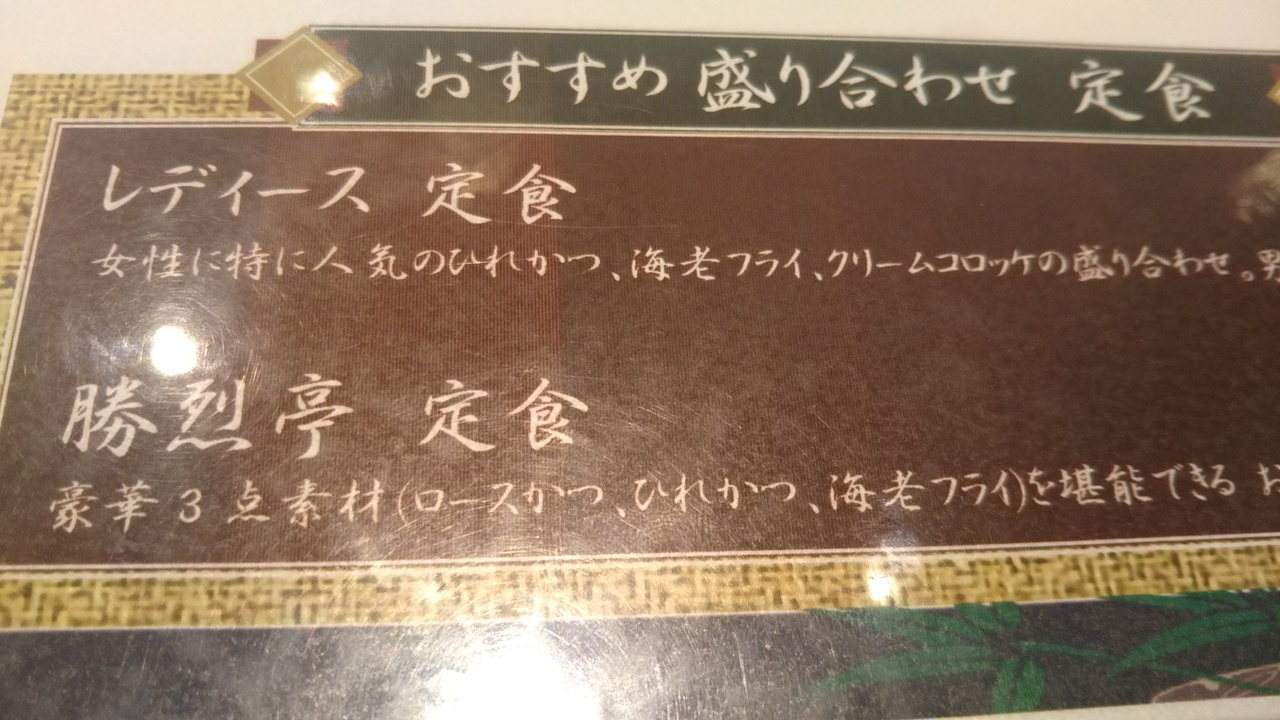 おすすめ 盛り合わせ 定食
レディース 定食
女性に特に人気のひれかつ、海老フライ、クリームコロッケの盛り合わせ。男
勝烈亭 定食
豪華3点素材(ロースかつ、ひれかつ、海老フライ)を堪能できる お